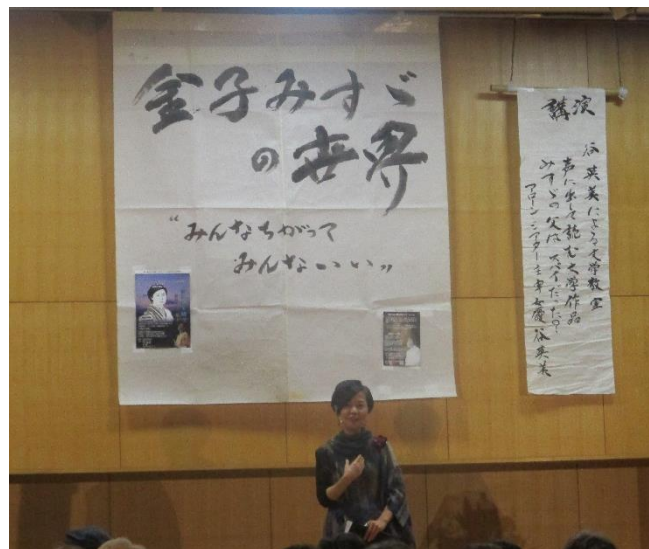 金子みすゞ
の世界
“みんなちがって
みんないい”
講演
谷英美による文学教室
声に出して読む文学作品
みすゞの父はスパイだったの?
アローン シアター主宰 女優 谷英美